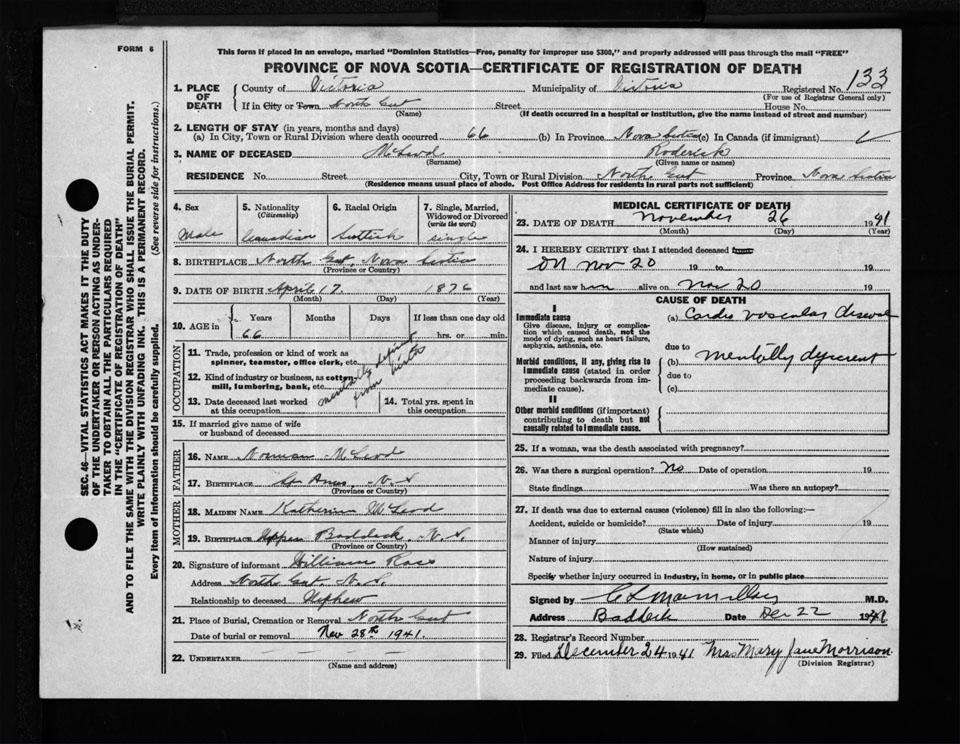 FORM 6
This form if placed in an envelope, marked "Dominion Statistics—Free, penalty for improper use $300," and properly addressed will pass through the mail "FREE"
PROVINCE OF NOVA SCOTIA—CERTIFICATE OF REGISTRATION OF DEATH
SEC. 46—VITAL STATISTICS ACT MAKES IT THE DUTY
OF THE UNDERTAKER OR PERSON ACTING AS UNDER-
TAKER TO OBTAIN ALL THE PARTICULARS REQUIRED
IN THE "CERTIFICATE OF REGISTRATION OF DEATH"
AND TO FILE THE SAME WITH THE DIVISION REGISTRAR WHO SHALL ISSUE THE BURIAL PERMIT.
WRITE PLAINLY WITH UNFADING INK. THIS IS A PERMANENT RECORD.
Every item of Information should be carefully supplied. (See reverse side for instructions.)
1. PLACE OF DEATH County of Victoria Municipality of Victoria Registered No. 133
(For use of Registrar General only)
If in City or Town North Gut Street House No.
(Name) (If death occurred in a hospital or institution, give the name instead of street and number)
2. LENGTH OF STAY (in years, months and days)
(a) In City, Town or Rural Division where death occurred 66 (b) In Province Nova Scotia (c) In Canada (if immigrant)
3. NAME OF DECEASED McLeod Roderick
(Surname) (Given name or names)
RESIDENCE No. Street City, Town or Rural Division North Gut Province Nova Scotia
(Residence means usual place of abode. Post Office Address for residents in rural parts not sufficient)
4. Sex 5. Nationality (Citizenship) 6. Racial Origin 7. Single, Married, Widowed or Divorced (write the word)
Male Canadian Scottish single
8. BIRTHPLACE North Gut, Nova Scotia
(Province or Country)
9. DATE OF BIRTH April 17 1876
(Month) (Day) (Year)
10. AGE in Years Months Days If less than one day old
66 hrs. or min.
OCCUPATION
11. Trade, profession or kind of work as
spinner, teamster, office clerk, etc.
12. Kind of industry or business, as cotton
mill, lumbering, bank, etc.
mentally
from birth
13. Date deceased last worked
at this occupation
14. Total yrs. spent in
this occupation
15. If married give name of wife
or husband of deceased
FATHER
16. NAME Norman McLeod
17. BIRTHPLACE St Anns, N.S
(Province or Country)
MOTHER
18. MAIDEN NAME Katherine McLeod
19. BIRTHPLACE Upper Baddeck, N.S.
(Province or Country)
20. Signature of informant William Ross
Address North Gut N.S.
Relationship to deceased Nephew
21. Place of Burial, Cremation or Removal North Gut
Date of burial or removal Nov 28th 1941.
22. UNDERTAKER — — — —
(Name and address)
MEDICAL CERTIFICATE OF DEATH
23. DATE OF DEATH November 26 1941
(Month) (Day) (Year)
24. I HEREBY CERTIFY that I attended deceased from
on Nov 20 19 to 19
and last saw him alive on Nov 20 19
CAUSE OF DEATH
I
Immediate cause (a) Cardio vascular disease
Give disease, injury or complica-
tion which caused death, not the
mode of dying, such as heart failure,
asphyxia, asthenia, etc.
due to
Morbid conditions, if any, giving rise to
immediate cause (stated in order
proceeding backwards from im-
mediate cause).
(b) Mentally
due to
(c)
II
Other morbid conditions (if important)
contributing to death but not
causally related to immediate cause.
25. If a woman, was the death associated with pregnancy?
26. Was there a surgical operation? No Date of operation 19
State findings Was there an autopsy?
27. If death was due to external causes (violence) fill in also the following:—
Accident, suicide or homicide? Date of injury 19
(State which)
Manner of injury
(How sustained)
Nature of injury
Specify whether injury occurred in industry, in home, or in public place
Signed by C L MacMillan M.D.
Address Baddeck Date Dec 22 1941
28. Registrar's Record Number
29. Filed December 24 1941 Mrs Mary Jane Morrison
(Division Registrar)